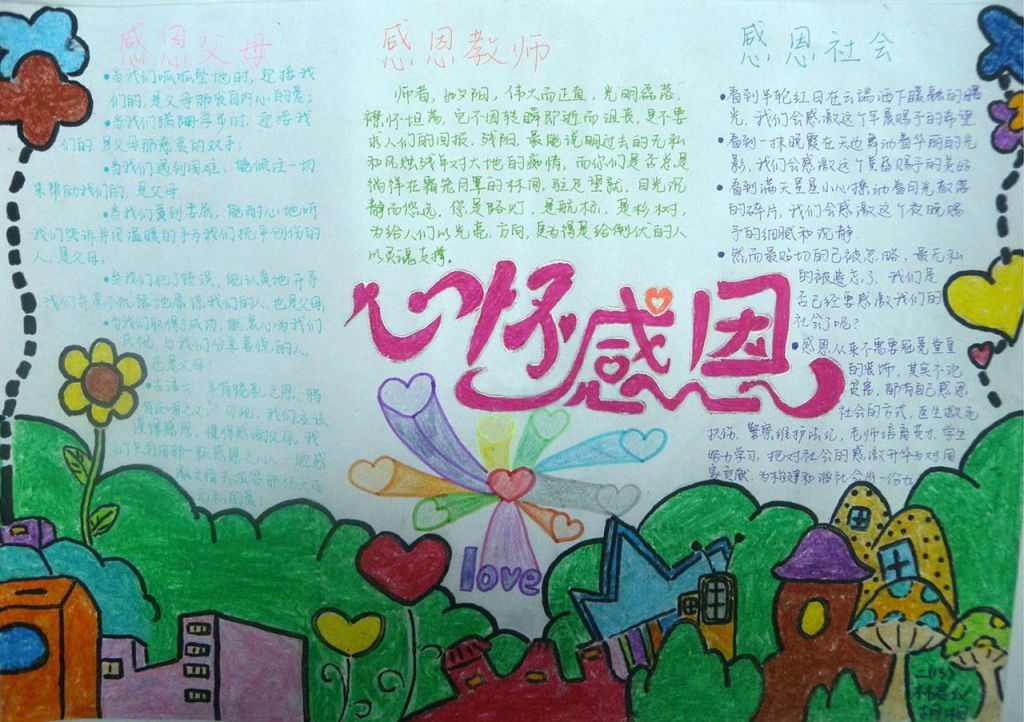 感恩父母
●当我们呱呱坠地时,迎接我
们的,是父母那发自内心的爱;
●当我们蹒跚学步时,迎接我
们的,是父母那慈爱的双手;
●当我们遇到困难,能倾注一切
来帮助我们的,是父母
●当我们受到委屈,能耐心地听
我们哭诉并用温暖的手为我们抚平创伤的
人,是父母;
●当我们犯了错误,能认真地开导
我们并毫不犹豫地原谅我们的人,也是父母;
●当我们取得了成功,能衷心为我们
庆祝,与我们分享喜悦的人,
还是父母
感恩教师
师者,如夕阳,伟大而正直,光明磊落,
襟怀坦荡,它不因转瞬即逝而沮丧,更不要
求人们的回报,残阳,最能说明过去的无私
和风烛残年对大地的痴情,而你们是否总是
徜徉在霜苍月罩的林间,驻足望就,目光沉
静而悠远。您是路灯,是航标,是杉树,
为给人们以光亮,方向,更为得是给倒伏的人
以灵魂支撑。
感恩社会
●看到半轮红日在云端洒下暖融的曙
光,我们会感激这个早晨赐予的希望
●看到一抹晚霞在天边舞动着华丽的光
影,我们会感激这个黄昏赐予的美好
●看到满天星星小心撩动着月光散落
的碎片,我们会感激这个夜晚赐
予的细腻和沉静.
●然而最贴切的已被忽略,最无私
的被遗忘了,我们是
否已经要感激我们的
社会了呢?
●感恩从来不需要冠冕堂皇
的装饰,其实不论
贫富,都有自己感恩
社会的方式,医生救死
扶伤,警察维护法纪,老师培育英才,学生
努力学习,把对社会的感激升华为对国
家贡献,为构建和谐社会出一份力
心怀感恩
love